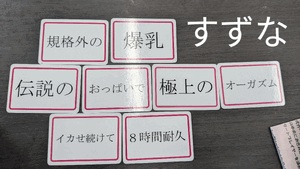 規格外の
爆乳
すずな
伝説の
おっぱいで
極上の
オーガズム
イカせ続けて
8時間耐久